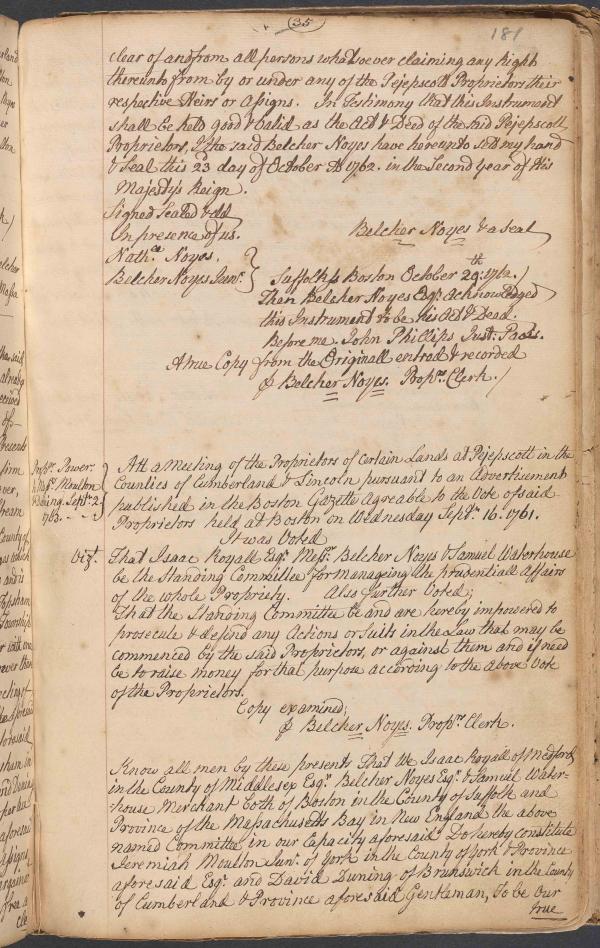 35
181
clear of and from all persons whatsoever claiming any Right
thereunto from by or under any of the Pejepscott Proprietors their
respective Heirs or Assigns. In Testimony that this Instrument
shall be held good & valid as the Act & Deed of the said Pejepscott
Proprietors, I the said Belcher Noyes have hereunto sett my hand
& Seal this 23 day of October AD 1762. in the Second year of His
Majestys Reign.
Signed Sealed & dld
In presence of us.
Belcher Noyes & a Seal
Nath.ll Noyes.
Belcher Noyes Junr.
Suffolk ss Boston October 29th. 1762.
Then Belcher Noyes Esqr. Acknowledged
this Instrument to be his Act & Deed.
Before me. John Phillips Just. Paces.
A true Copy from the Originall entred & recorded
p Belcher Noyes. Propr. Clerk.
Proprs. Power.
Moulton
& Duning. Septr. 2
1763.
Att a meeting of the Proprietors of Certain Lands at Pejepscott in the
Counties of Cumberland & Lincoln pursuant to an Advertisement
published in the Boston Gazette Agreable to the Vote of said
Proprietors held at Boston on Wednesday Septr. 16. 1761.
It was Voted
Vizt. That Isaac Royall Esqr. Messrs. Belcher Noyes & Samuel Waterhouse
be the Standing Committee for manageing the prudentiall Affairs
of the whole Propriety. Also further Voted;
That the Standing Committee be and are hereby impowered to
prosecute & defend any Actions or Suits in the Law that may be
commenced by the said Proprietors, or against them and if need
be to raise money for that purpose according to the above Vote
of the Proprietors.
Copy examined;
p Belcher Noyes. Propr. Clerk.
Know all men by these presents That We Isaac Royall of Medford
in the County of Middlesex Esqr. Belcher Noyes Esqr. & Samuel Water-
house Merchant both of Boston in the County of Suffolk and
Province of the Massachusetts Bay in New England the above
named Committee in our Capacity aforesaid Do hereby constitute
Jeremiah Moulton Junr. of York in the County of York & Province
aforesaid Esqr. and David Duning of Brunswick in the County
of Cumberland & Province aforesaid Gentleman, To be Our
true